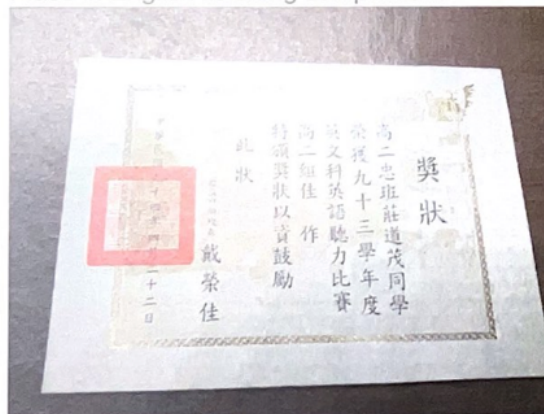 獎狀
高二忠班莊道茂同學
榮獲九十三學年度
英文科英語聽力比賽
高二組佳作
特頒獎狀以資鼓勵
此狀
戴榮佳
中華民國九十四年四月二十二日